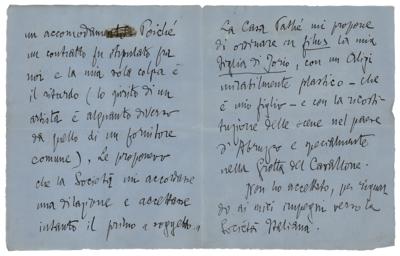 un accomodamento. Poiché
un contratto fu stipulato fra
noi e la mia sola colpa è
il ritardo (lo spirito di un
artista è alquanto diverso
da quello di un fornitore
comune), Le proponevo
che la Società mi accordasse
una dilazione e accettasse
intanto il primo "soggetto"
La Casa Pathé mi propone
di ordinare in films la mia
Figlia di Jorio, con un Aligi
mirabilmente plastico – che
è mio figlio – e con la ricosti-
tuzione delle scene nel paese
d'Abruzzo e specialmente
nella Grotta del Cavallone.
Non ho accettato, per riguar-
do ai miei impegni verso la
Società Italiana.